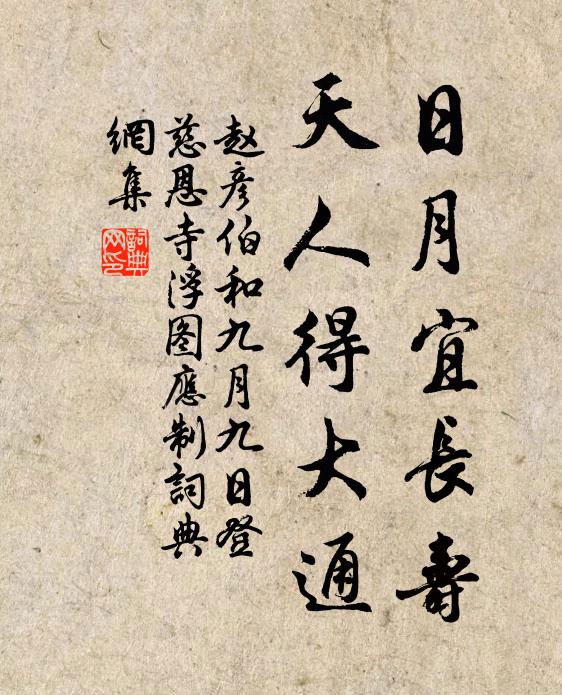 日月宜長壽
天人得大通
赵彦伯和九月九日登
慈恩寺浮图應制詞典
網集
詞典
网印